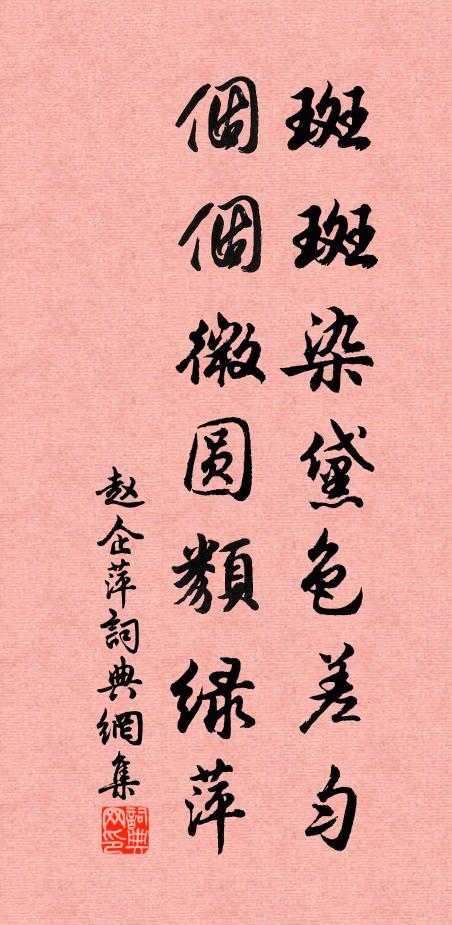 斑斑染黛色差匀
個個微圆類绿萍
赵企萍詞典網集
詞典网印